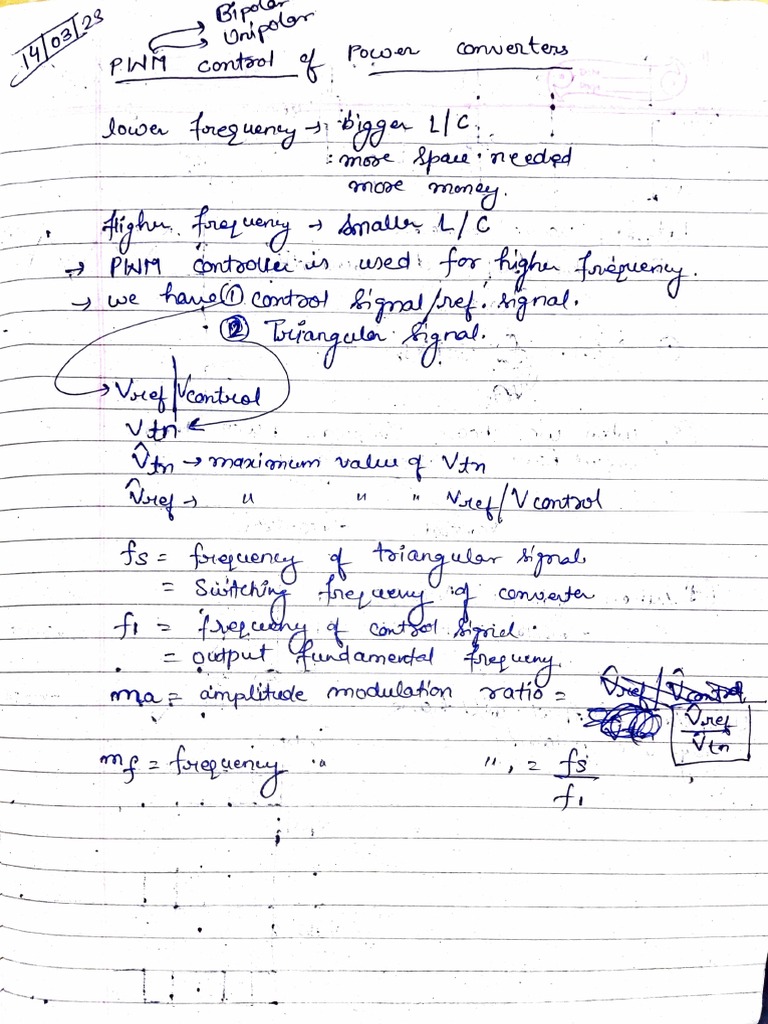 14/03/23
Bipolar
Unipolar
PWM control of Power converters
lower frequency → bigger L/C.
more space needed
more money.
Higher frequency → smaller L/C
→ PWM controller is used for higher frequency.
→ we have ① control signal/ref. signal.
② Triangular signal.
Vref/Vcontrol
Vtn
V̂tn → maximum value of Vtn
V̂ref → " " " Vref/Vcontrol
fs = frequency of triangular signal
= Switching frequency of converter
f1 = frequency of control signal.
= output fundamental frequency
ma = amplitude modulation ratio = V̂ref/V̂control
V̂ref
V̂tn
mf = frequency " ", = fs
f1